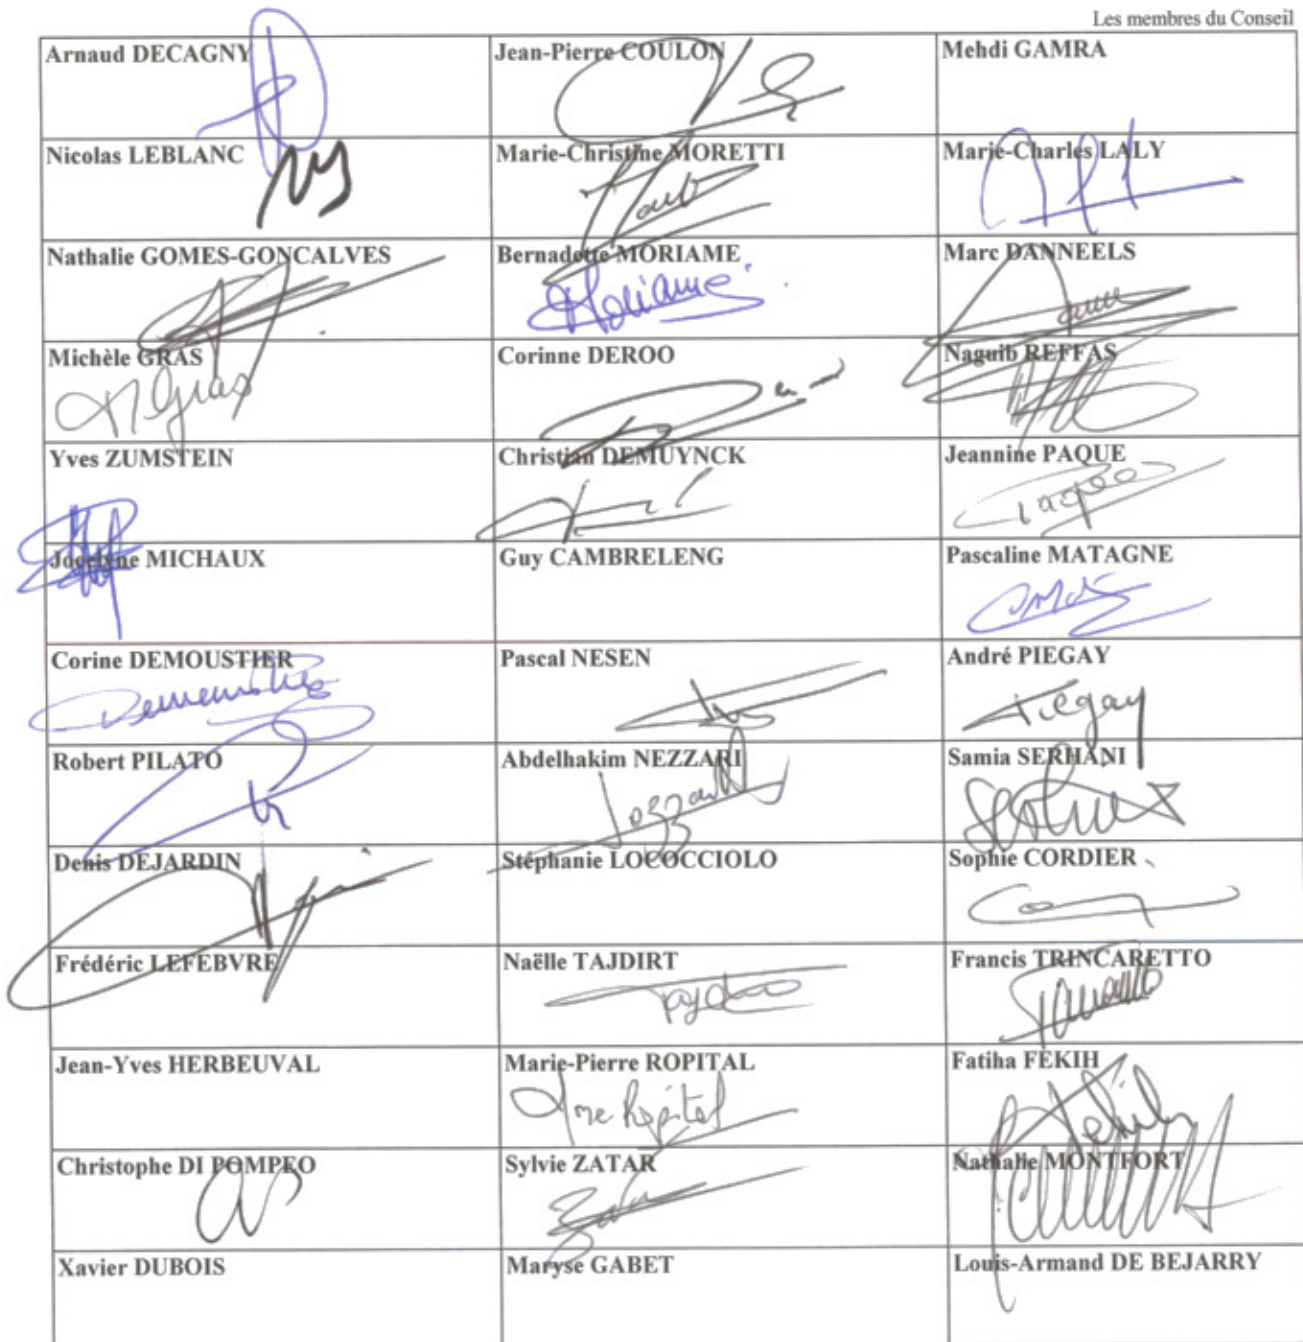 Les membres du Conseil
Arnaud DECAGNY Jean-Pierre COULON Mehdi GAMRA
Nicolas LEBLANC Marie-Christine MORETTI Marie-Charles LALY
Nathalie GOMES-GONCALVES Bernadette MORIAME Marc DANNEELS
Moriamé
Michèle GRAS Corinne DEROO Naguib REFFAS
M Gras
Yves ZUMSTEIN Christian DEMUYNCK Jeannine PAQUE
Jocelyne MICHAUX Guy CAMBRELENG Pascaline MATAGNE
Corine DEMOUSTIER Pascal NESEN André PIEGAY
Piegay
Robert PILATO Abdelhakim NEZZARI Samia SERHANI
Denis DEJARDIN Stéphanie LOCOCCIOLO Sophie CORDIER
Frédéric LEFEBVRE Naëlle TAJDIRT Francis TRINCARETTO
Jean-Yves HERBEUVAL Marie-Pierre ROPITAL Fatiha FEKIH
Me Ropital Fekih
Christophe DI POMPEO Sylvie ZATAR Nathalie MONTFORT
Xavier DUBOIS Maryse GABET Louis-Armand DE BEJARRY